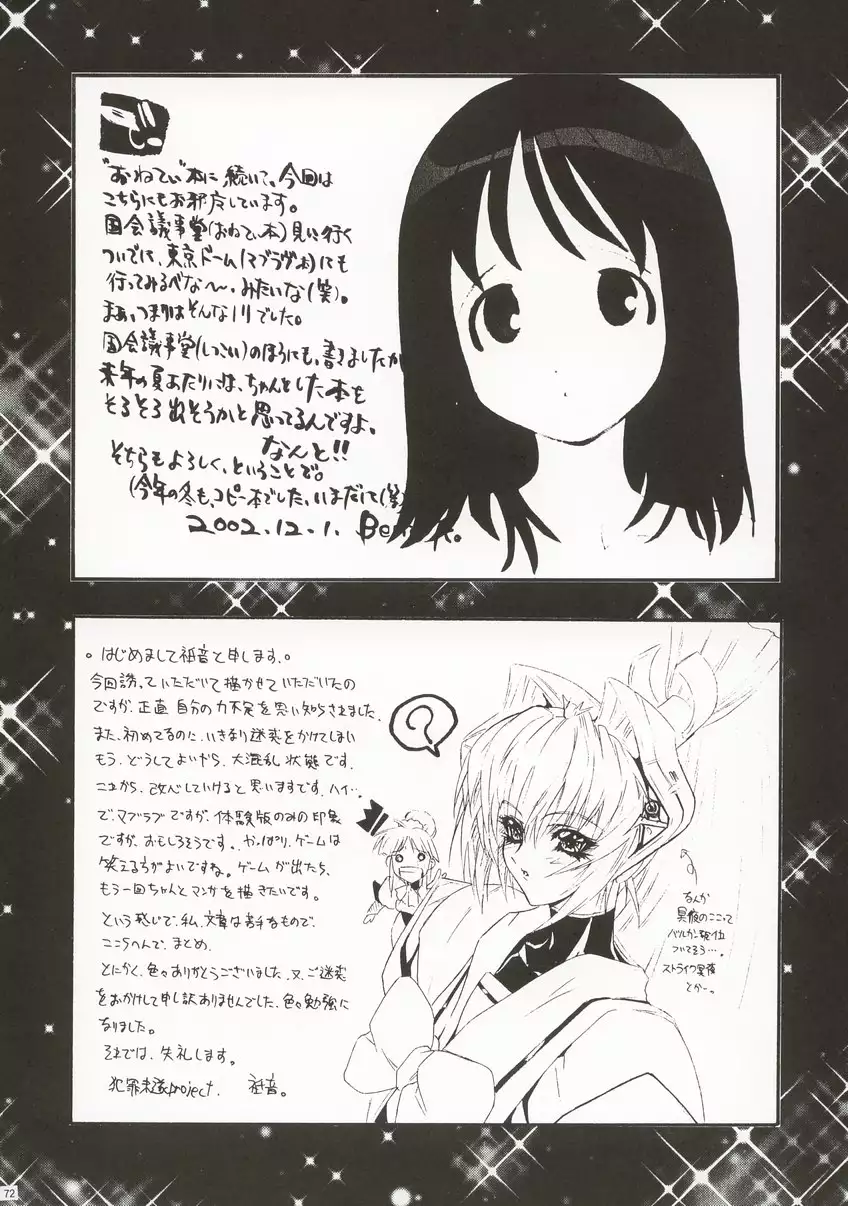 "おねてぃ"本に続いて、今回は
こちらにもお邪魔しています。
国会議事堂(おねてぃ本)見に行く
ついでに、東京ドーム(マブラヴ本)にも
行ってみるべな〜、みたいな(笑)。
まぁ、つまりはそんなノリでした。
国会議事堂(しつこい)のほうにも、書きましたが
来年の夏あたりには、ちゃんとした本を
そろそろ出そうかと思ってるんですよ。
なんと!!
そちらもよろしく、ということで。
(今年の冬も、コピー本でした、いまだに(笑)
2002.12.1.
。はじめまして祗音と申します。
今回誘っていただいて描かせていただいたの
ですが、正直自分の力不足を思い知らされました。
また、初めてなのに、いきなり迷惑をかけてしまい
もう、どうしてよいやら、大混乱状態です。
これから、改心していけると思いますです、ハイ…
で、マブラブですが、体験版のみの印象
ですが、おもしろそうです。やっぱり、ゲームは
笑える方がよいですね。ゲームが出たら、
もう一回ちゃんとマンガを描きたいです。
という感じで、私、文章は苦手なもので、
ここらへんで、まとめ、
とにかく、色々ありがとうございました、又、ご迷惑
をおかけして申し訳ありませんでした、色々勉強に
なりました。
それでは、失礼します。
犯罪未遂project. 祗音。
?
なんか
冥夜のここって
バルカン砲位
ついてそう…。
ストライク冥夜
とかーっ
72